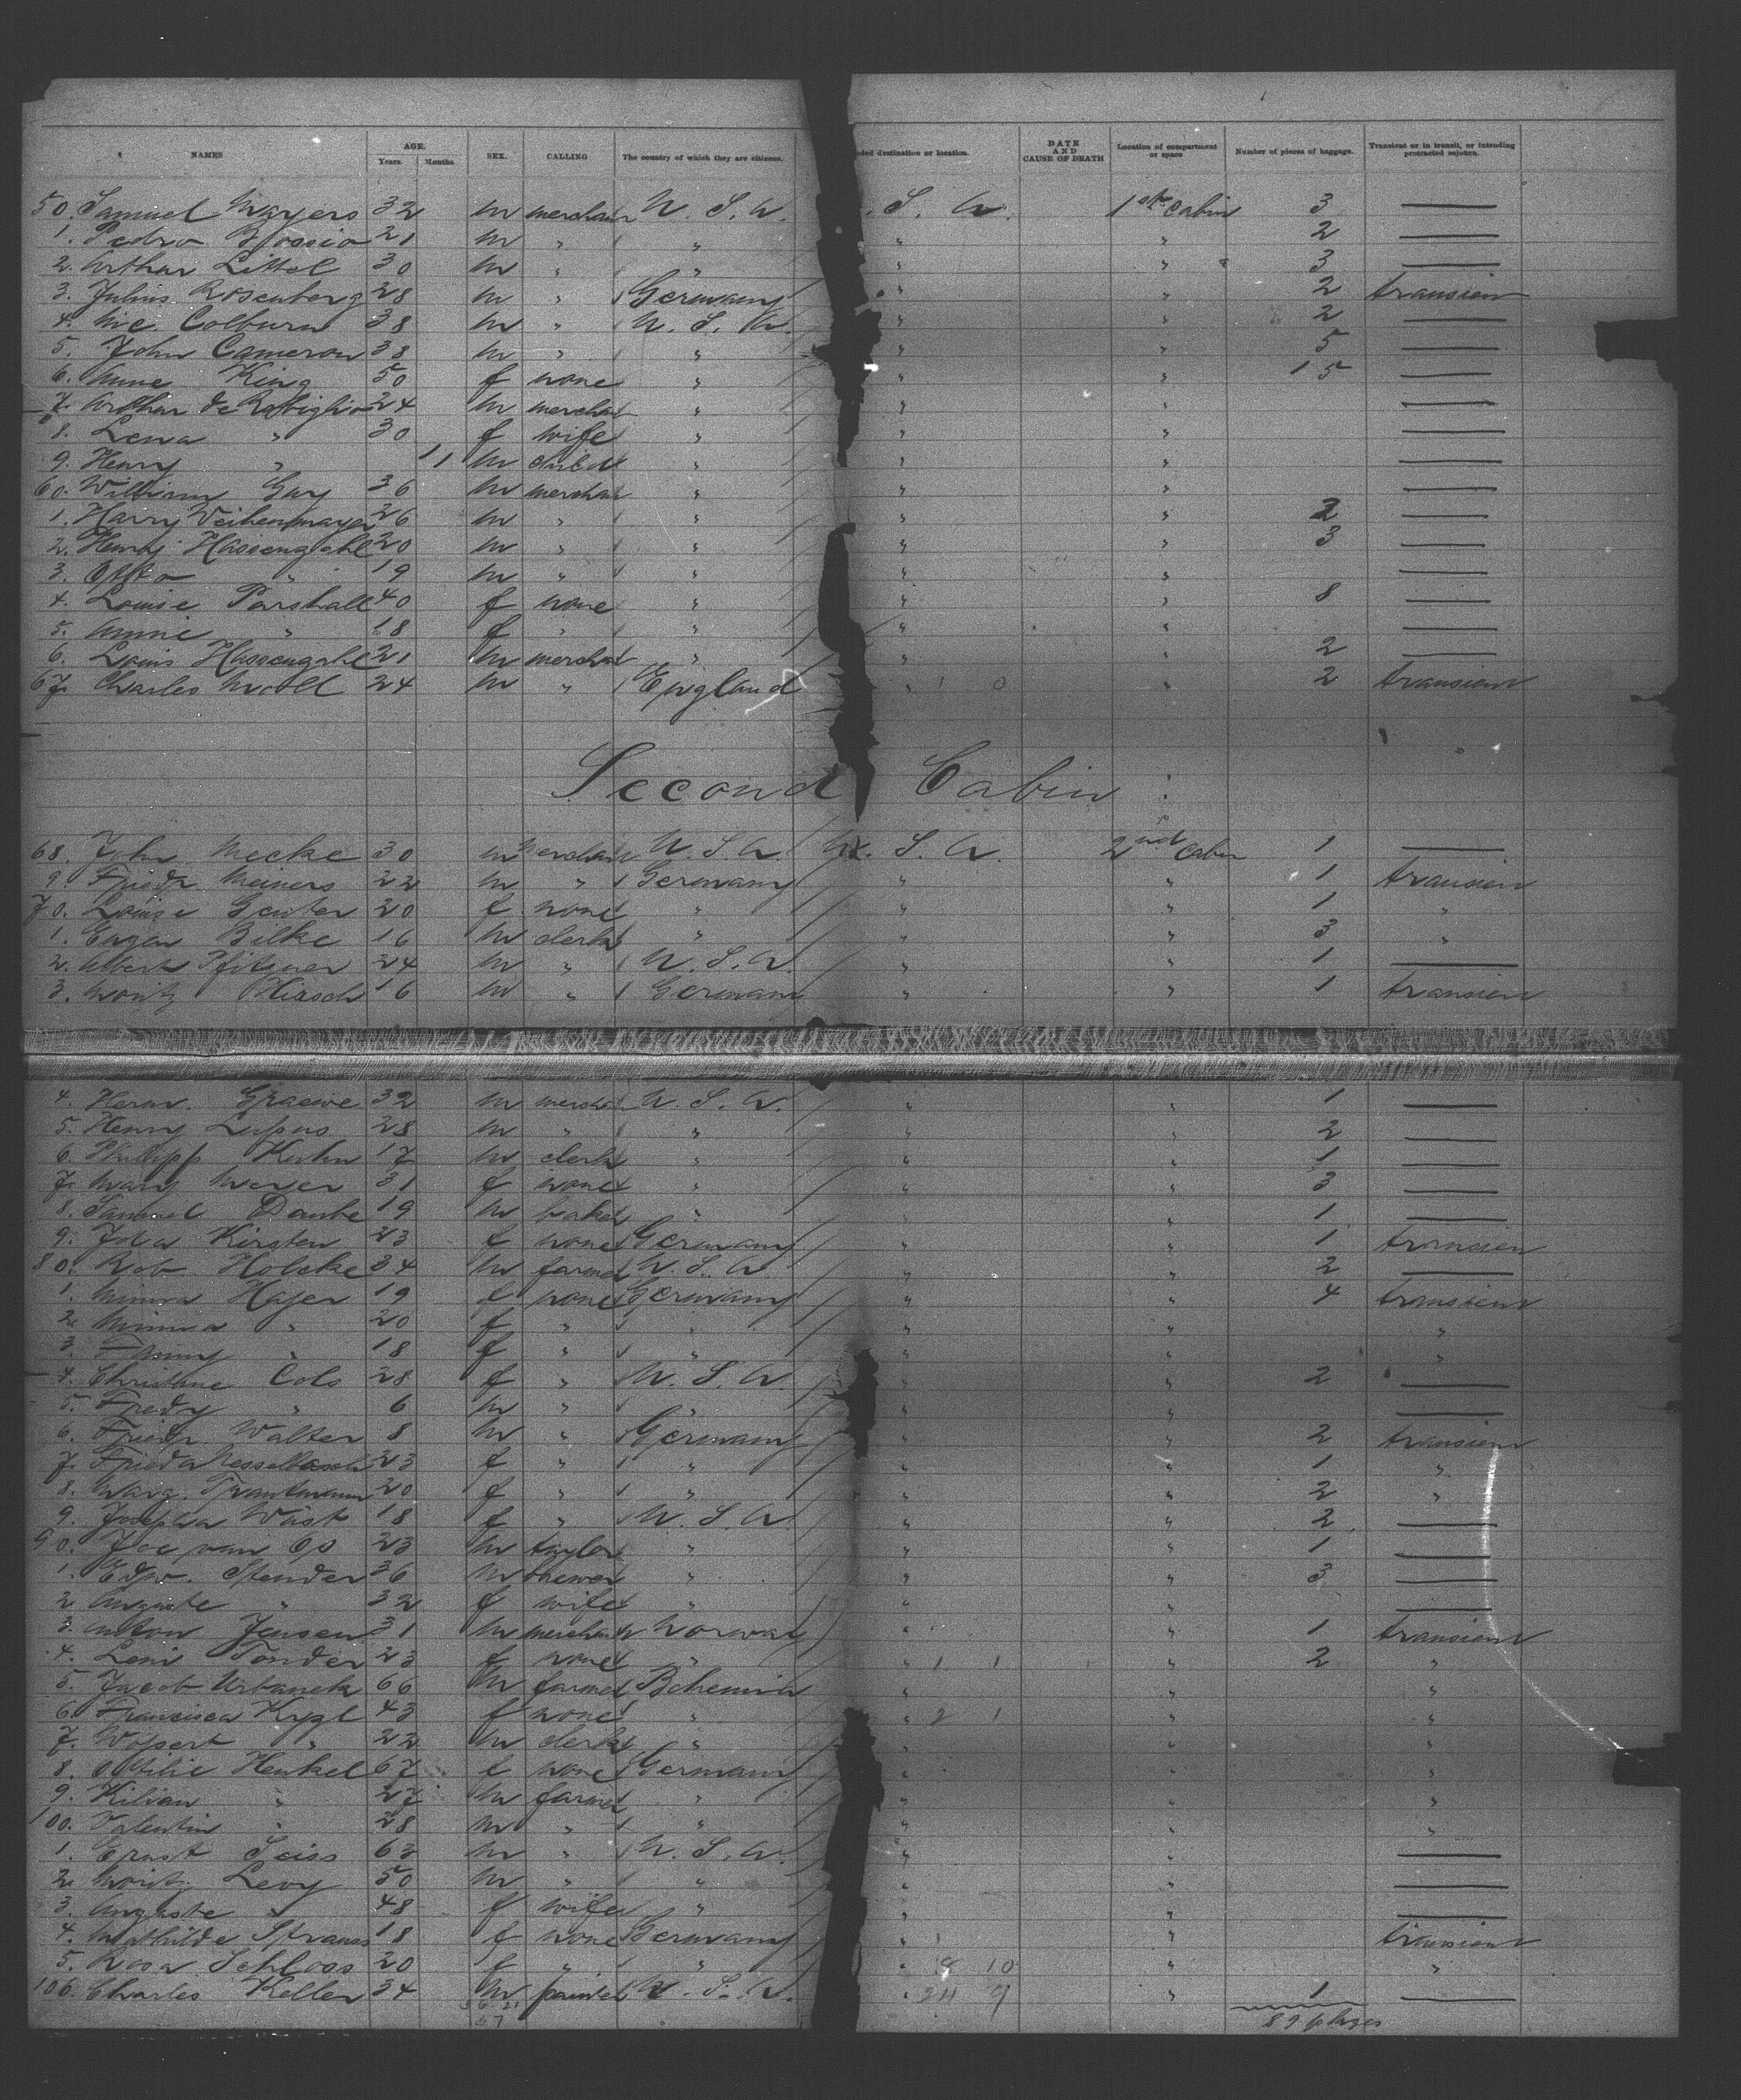 NAMES AGE. Years. Months. SEX. CALLING The country of which they are citizens. ded destination or location. DATE AND CAUSE OF DEATH Location of compartment or space Number of pieces of baggage. Transient or in transit, or intending protracted sojourn.
50. Samuel Mayers 32 m merchan U. S. A. . S. A. 1st Cabin 3 —
1. Pedro 21 m " " " " 2 —
2. Arthur Littel 30 m " " " " 3 —
3. Julius Rosenberg 28 m " Germany " " 2 transien
4. Mc. Colburn 38 m " U. S. A. " " 2 —
5. John Cameron 38 m " " " " 5 —
6. Anne King 50 f none " " " 15 —
7. Arthur de 24 m merchan " " " —
8. Lena " 30 f wife " " " —
9. Henry " 11 m child " " " —
60. William Guy 36 m merchan " " " —
1. Harry Weihenmayer 26 m " " " " 2 —
2. Henry Hassengahl 20 m " " " " 3 —
3. Otto " 19 m " " " " —
4. Louise Parshall 40 f none " " " 8 —
5. Annie " 18 f " " " " —
6. Louis Hassengahl 21 m merchan " " " 2 —
67. Charles 24 m " England " 1 0 " 2 transient
Second Cabin :
68. John Mecke 30 m merchan U. S. A. U. S. A. 2nd Cabin 1 —
9. Friedr. Meiners 22 m " Germany " " 1 transien
70. Louise Genter 20 f none " " " 1 "
1. Eugen Bilke 16 m clerk " " " 3 "
2. Albert Pfitzner 24 m " U. S. A. " " 1 —
3. Moritz Hirsch 16 m " Germany " " 1 transien
4. Herm. Graewe 32 m merchan U. S. A. " " 1 —
5. Henry Lupus 28 m " " " " 2 —
6. Philipp Kuhn 17 m clerk " " " 1 —
7. Mary Meyer 31 f none " " " 3 —
8. Samuel Daube 19 m baker " " " 1 —
9. Ida Kirsten 23 f none Germany " " 1 transien
80. Rob. Holcke 34 m farmer U. S. A. " " 2 —
1. Minna Hajer 19 f none Germany " " 4 transient
2. Minna " 20 f " " " " "
3. Fanny " 18 f " " " " "
4. Christine Cols 28 f " U. S. A. " " 2 —
5. Fredy " 6 m " " " " —
6. Friedr. Walter 8 m " Germany " " 2 transien
7. Frieda 23 f " " " " 1 "
8. Marg. Trautmann 20 f " " " " 2 "
9. Josepha Wüst 18 f " U. S. A. " " 2 —
90. Joe van Os 23 m taylor " " " 1 —
1. Edw. Stender 36 m brewer " " " 3 —
2. Auguste " 32 f wife " " " —
3. Anton Jensen 31 m merchant Norway " " 1 transient
4. Leni Tonder 23 f none " " 1 1 " 2 "
5. Jacob Urbanek 66 m farmer Bohemia " " "
6. Francisca Krygl 43 f none " " 2 1 " "
7. " 22 m clerk " " " "
8. Ottilie Henkel 67 f none Germany " " "
9. Kilian " 27 m farmer " " " "
100. Valentin " 28 m " " " " "
1. Ernst Seiss 63 m " U. S. A. " " —
2. Moritz Levy 50 m " " " " —
3. Auguste " 48 f wife " " " —
4. Mathilde Strauss 18 f none Germany " " transient
5. Rosa Schloss 20 f " " " 8 10 " "
106. Charles Keller 34 m painter U. S. A. " 24 9 " 1 —
36 21
57
89 pkges